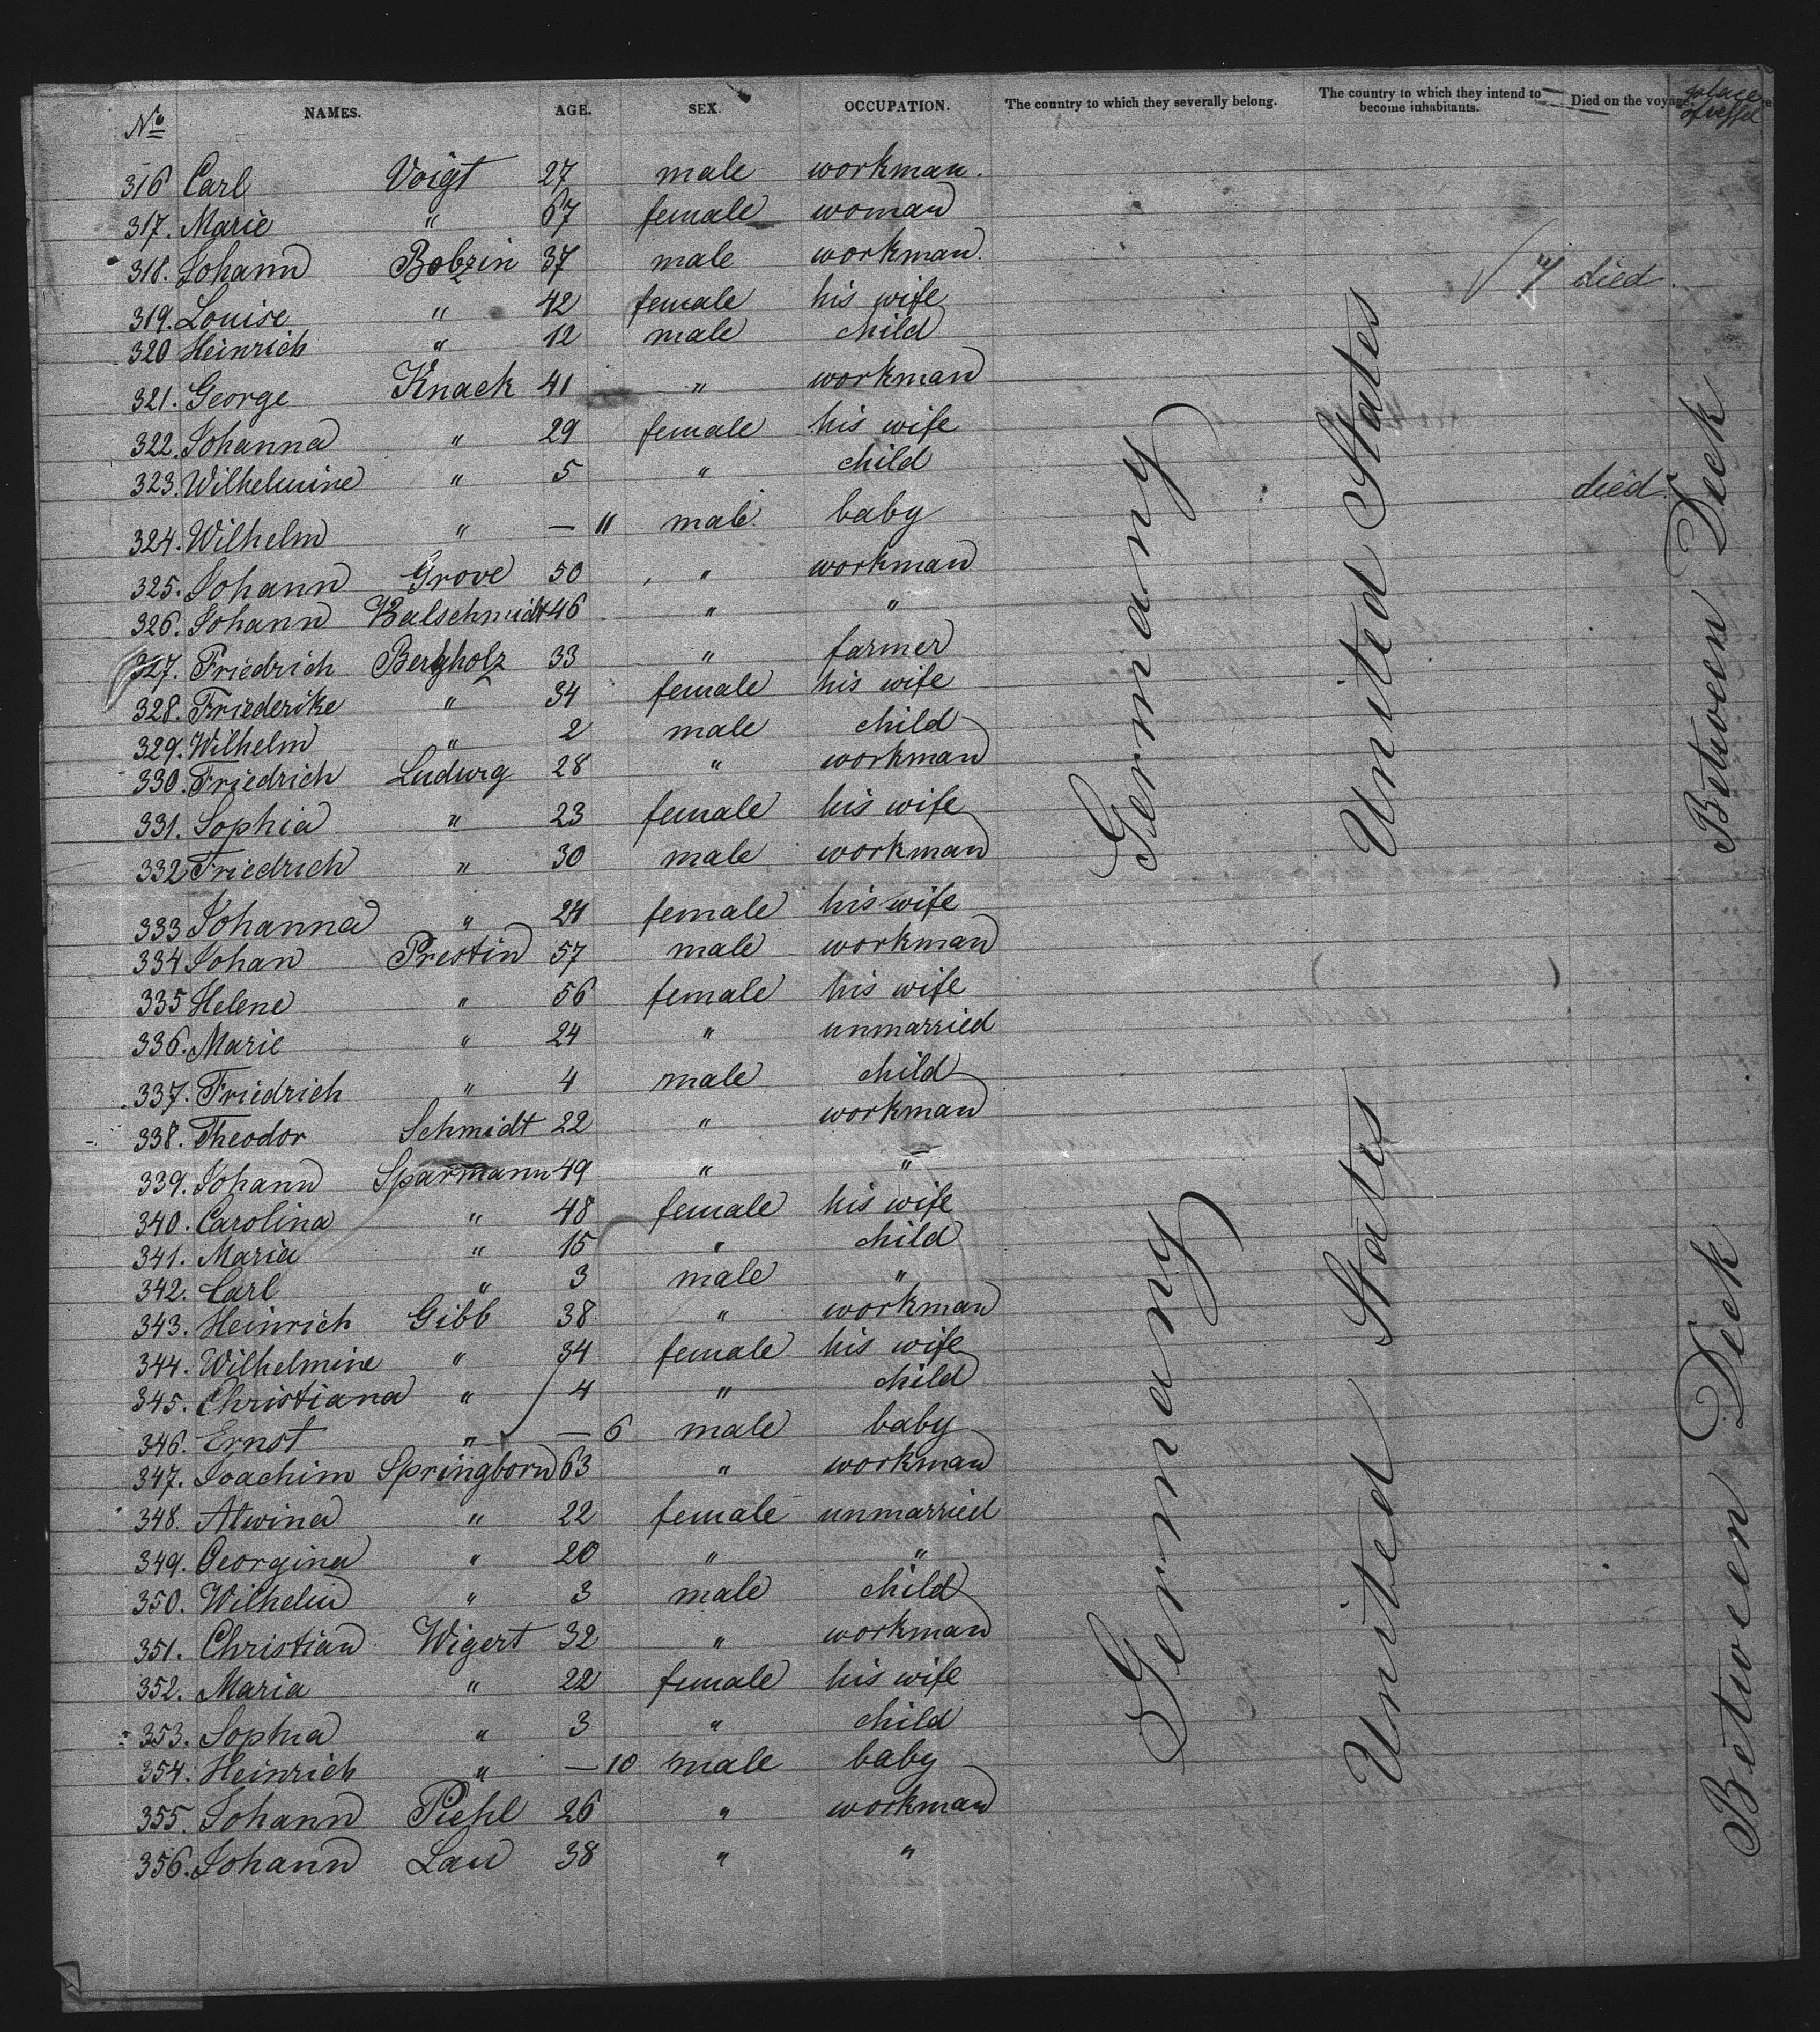 No NAMES. AGE. SEX. OCCUPATION. The country to which they severally belong. The country to which they intend to become inhabitants. Died on the voyage. place of vessel
316 Carl Voigt 27 male workman.
317. Marie " 67 female woman
318. Johann Bobzin 37 male workman. died.
319. Louise " 42 female his wife
320 Heinrich " 12 male child
321. George Knack 41 " workman
322. Johanna " 29 female his wife
323. Wilhelmine " 5 " child died.
324. Wilhelm " — 11 male baby
325. Johann Grove 50 " workman
326. Johann Kalschmidt 46 " "
327. Friedrich Bergholz 33 " farmer
328. Friederike " 34 female his wife
329. Wilhelm " 2 male child
330. Friedrich Ludwig 28 " workman
331. Sophia " 23 female his wife
332 Friedrich " 30 male workman
333 Johanna " 24 female his wife
334 Johan Prestin 57 male workman
335 Helene " 56 female his wife
336. Marie " 24 " unmarried
337. Friedrich " 4 male child
338. Theodor Schmidt 22 " workman
339. Johann Sparmann 49 " "
340. Carolina " 48 female his wife
341. Maria " 15 " child
342. Carl " 3 male "
343. Heinrich Gibb 38 " workman
344. Wilhelmine " 34 female his wife
345. Christiana " 4 " child
346. Ernst " — 6 male baby
347. Joachim Springborn 63 " workman
348. Alwina " 22 female unmarried
349. Georgina " 20 " "
350. Wilhelm " 3 male child
351. Christian Wigert 32 " workman
352. Maria " 22 female his wife
353. Sophia " 3 " child
354. Heinrich " — 10 male baby
355. Johann Piehl 26 " workman
356. Johann Lau 38 " "
Germany
United States
Between Deck
Germany
United States
Between Deck